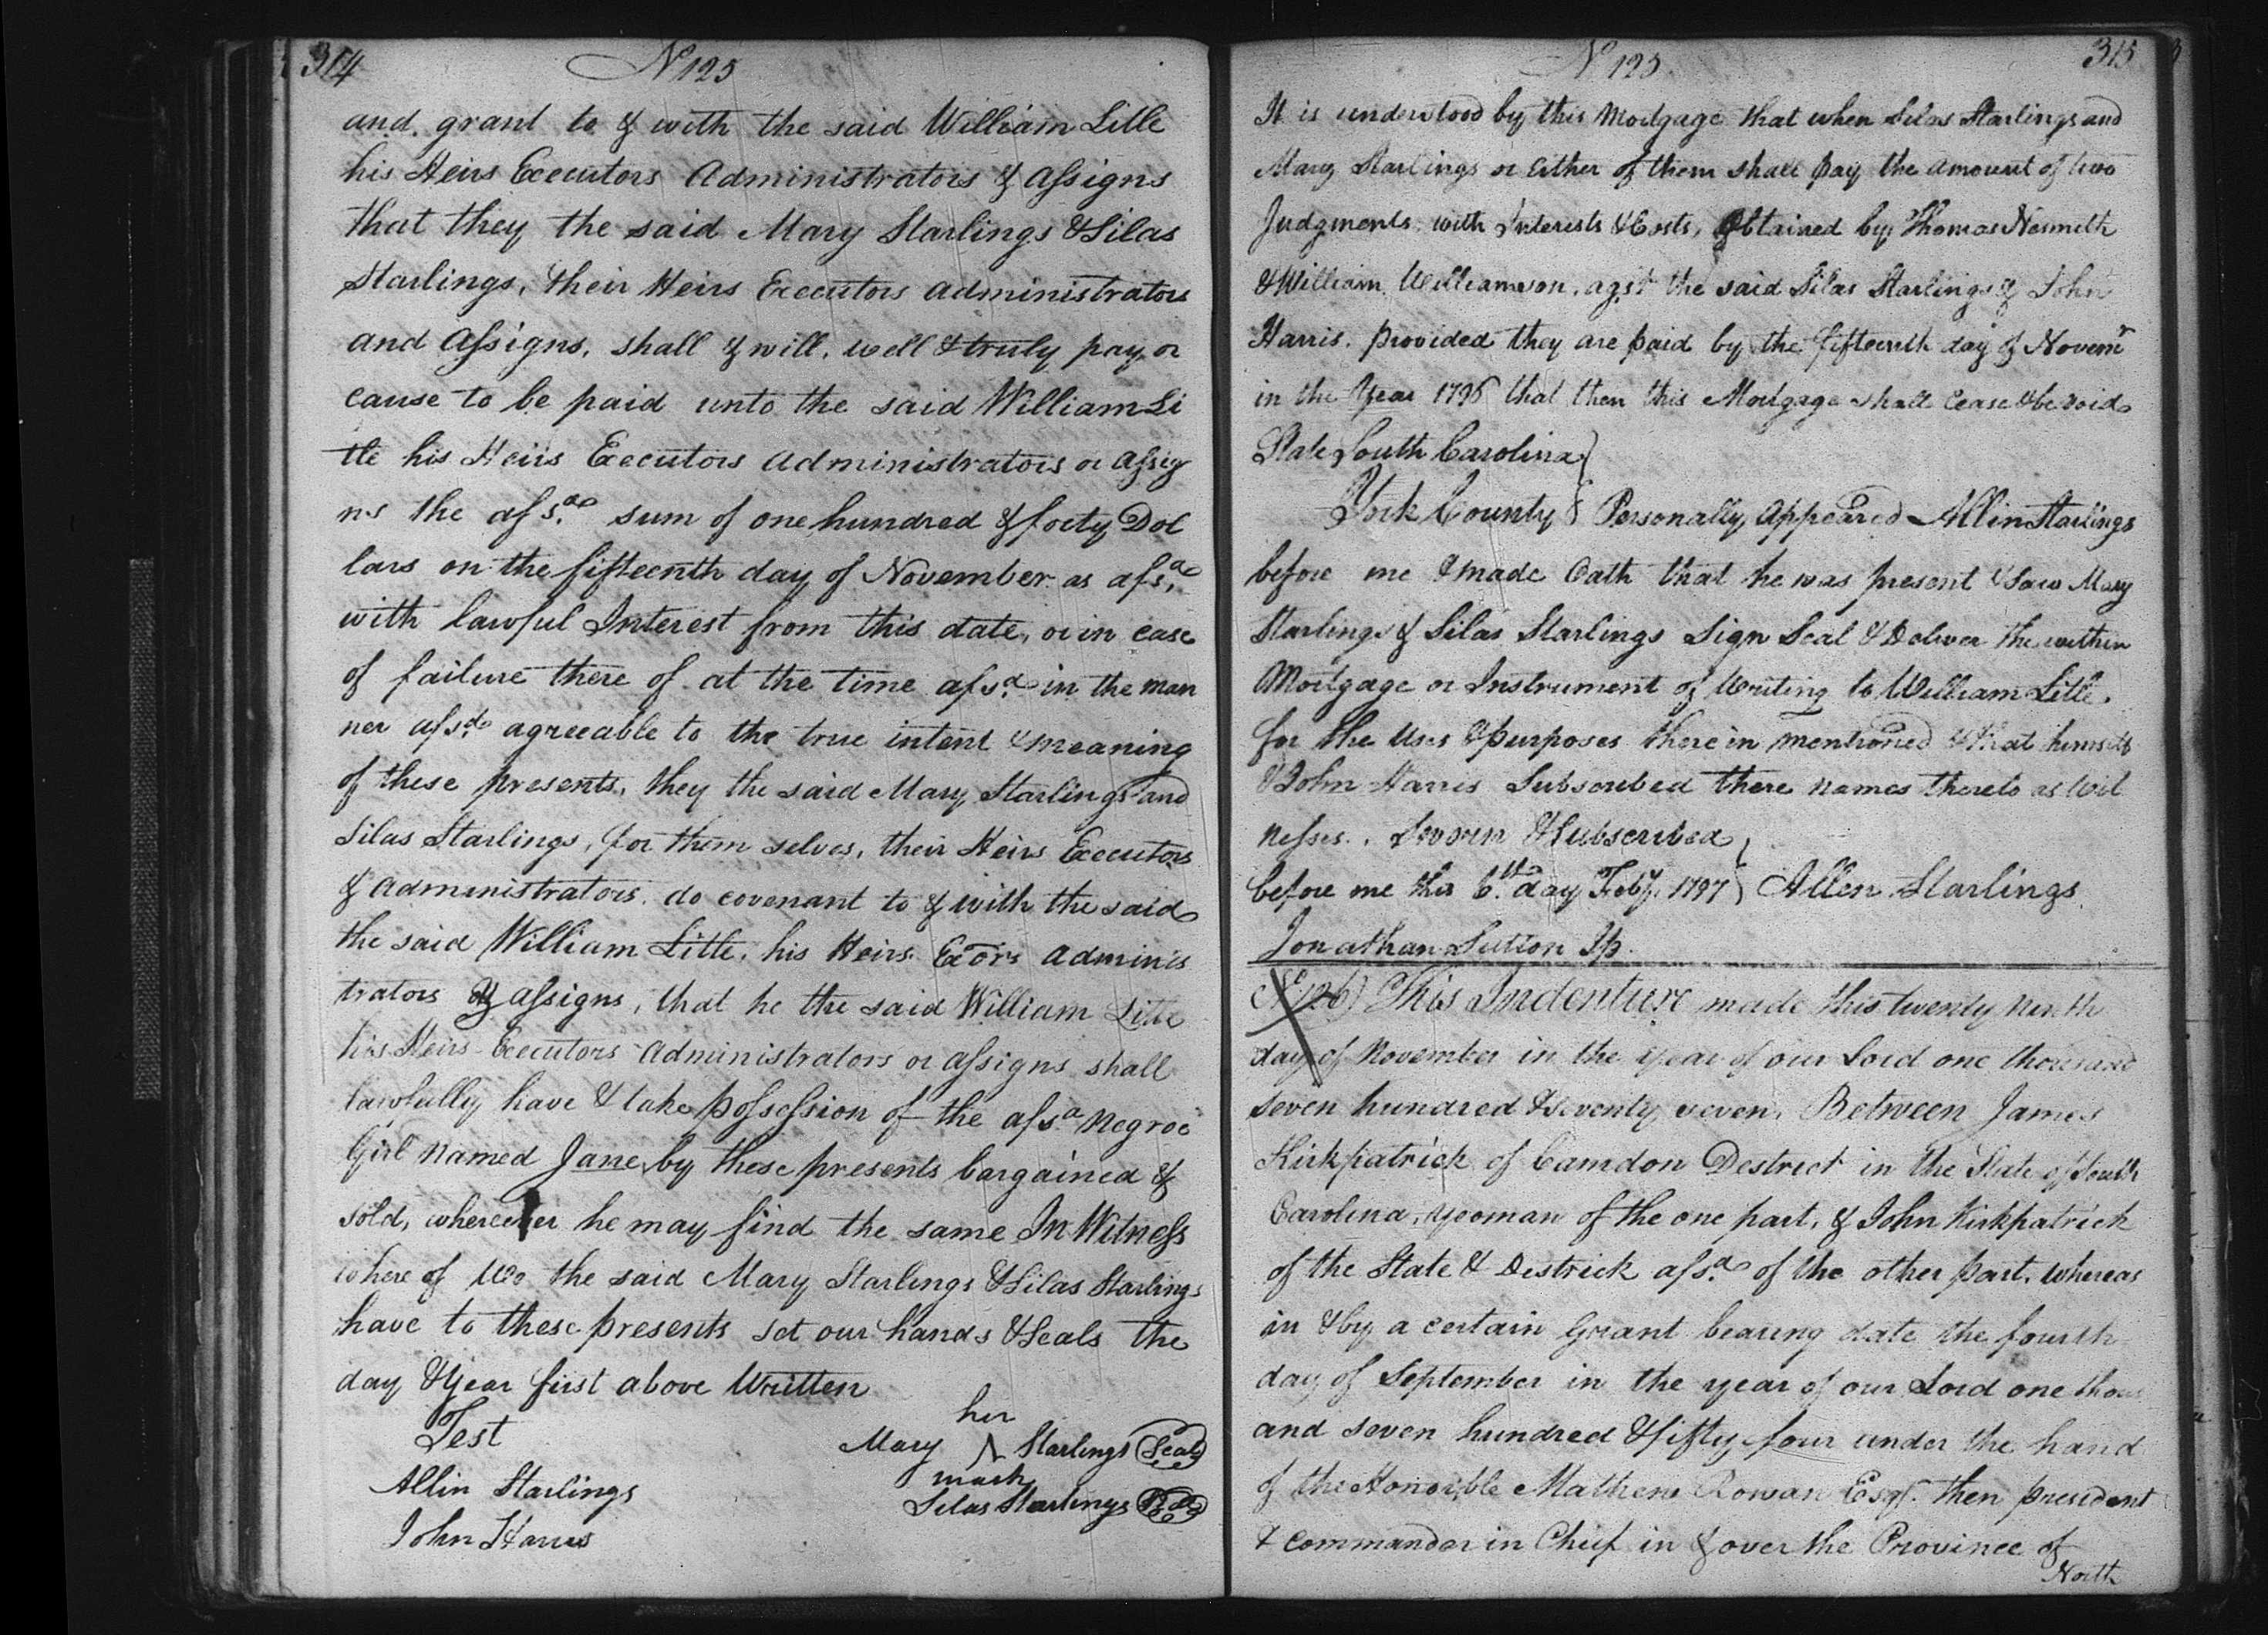 314
No 125
and grant to & with the said William Litle
his Heirs Executors Administrators & assigns
that they the said Mary Starlings & Silas
Starlings, their Heirs Executors administrators
and assigns, shall & will, well & truly pay, or
cause to be paid unto the said William Li
tle his Heirs Executors administrators or assig
ns the afsd. sum of one hundred & forty Dol
lars on the fifteenth day of November as afsd.
with lawful Interest from this date, or in case
of failure there of at the time afsd. in the man
ner afsd. agreeable to the true intent & meaning
of these presents, they the said Mary Starlings and
Silas Starlings, for them selves, their Heirs Executors
& administrators do covenant to & with the said
the said William Litle, his Heirs Exors adminis
trators & assigns, that he the said William Litle
his Heirs Executors administrators or assigns shall
lawfully have & take possession of the afsd negroe
Girl named Jane by these presents bargained &
sold, wherever he may find the same In Witness
where of We the said Mary Starlings & Silas Starlings
have to these presents set our hands & Seals the
day & Year first above Written
Test
her
Mary Starlings Seal
mark
Allin Starlings
Silas Starlings Seal
John Harris
No 125
315
It is understood by this Modgage that when Silas Starlings and
Mary Starlings or Either of them shall pay the amount of two
Judgments with Interests & Costs, Obtained by Thomas Nesmith
& William Williamson, agst the said Silas Starlings & John
Harris, provided they are paid by the fifteenth day of Novemr
in the Year 1796 that then this Modgage shall Cease & be void
State South Carolina
York County Personally, Appeared Allin Starlings
before me & made Oath that he was present & Saw Mary
Starlings & Silas Starlings Sign Seal & Deliver the within
Modgage or Instrument of Writing to William Litle,
for the Uses & purposes there in mentioned & that himself
& John Harris Subscribed there names thereto as Wit
nesses. Sworn & Subscribed
before me this 6th. day Feby. 1797 Allen Starlings
Jonathan Sutton Jp.
No 126) This Indenture made this twenty ninth
day of November in the year of our Lord one thousand
seven hundred & seventy seven, Between James
Kirkpatrick of Camdon Destrect in the State of South
Carolina, yeoman of the one part, & John Kirkpatrick
of the State & Destrick afsd. of the other part. whereas
in & by a certain Grant bearing date the fourth
day of September in the year of our Lord one thous
and seven hundred & fifty four under the hand
of the Honorible Mathew Rowan Esqr. then president
& commander in Chief in & over the Province of
North